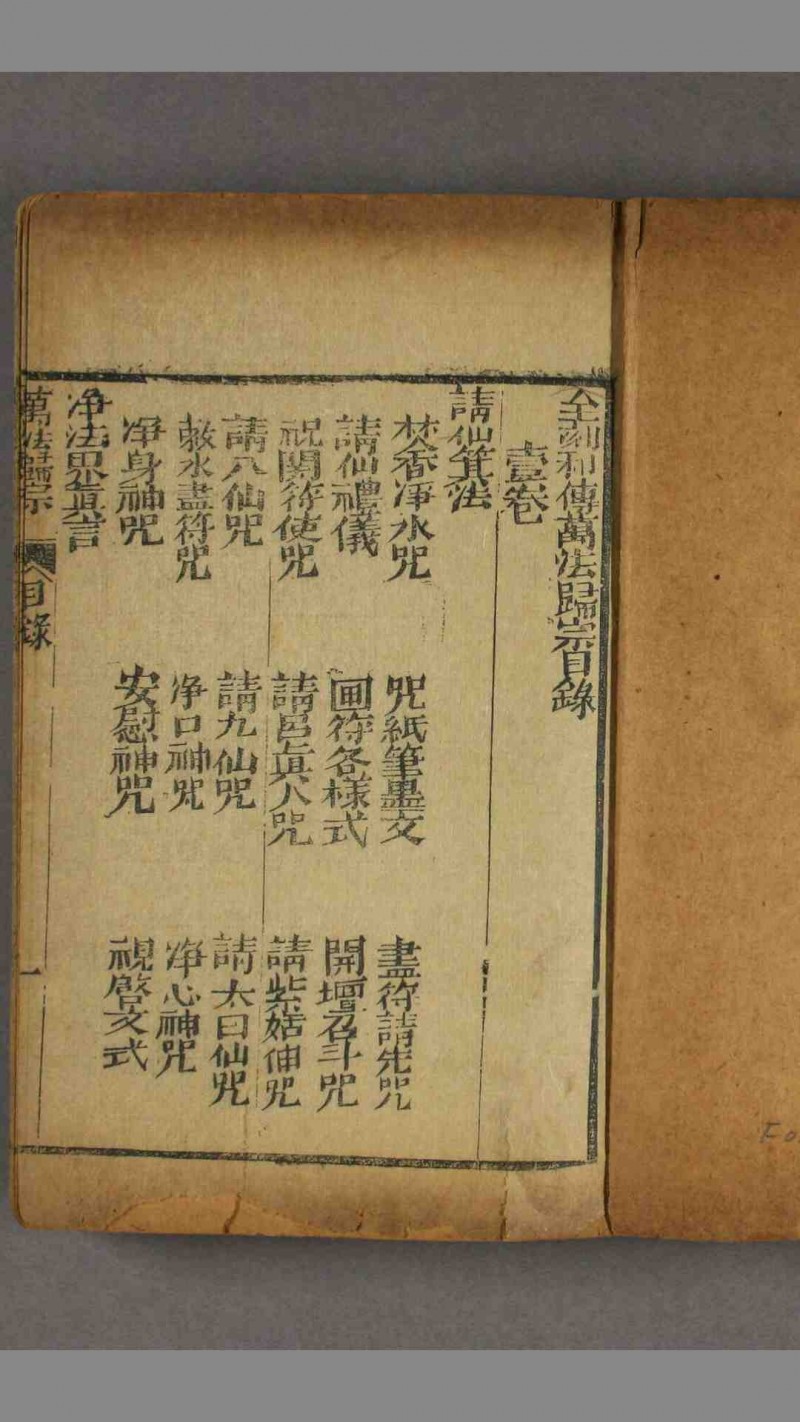 全刻秘傳萬法歸宗目錄
壹卷
請仙箕法
焚香凈水咒 咒紙筆墨文 畫符請先咒
請仙禮儀 画符各樣式 開壇召斗咒
祝関符使咒 請呂眞人咒 請紫姑伸咒
請八仙咒 請九仙咒 請太白仙咒
敕水畫符咒 净口神咒 净心神咒
净身神咒 安慰神咒 視啓文式
净法界眞言
萬法歸宗 目錄 一
Fo